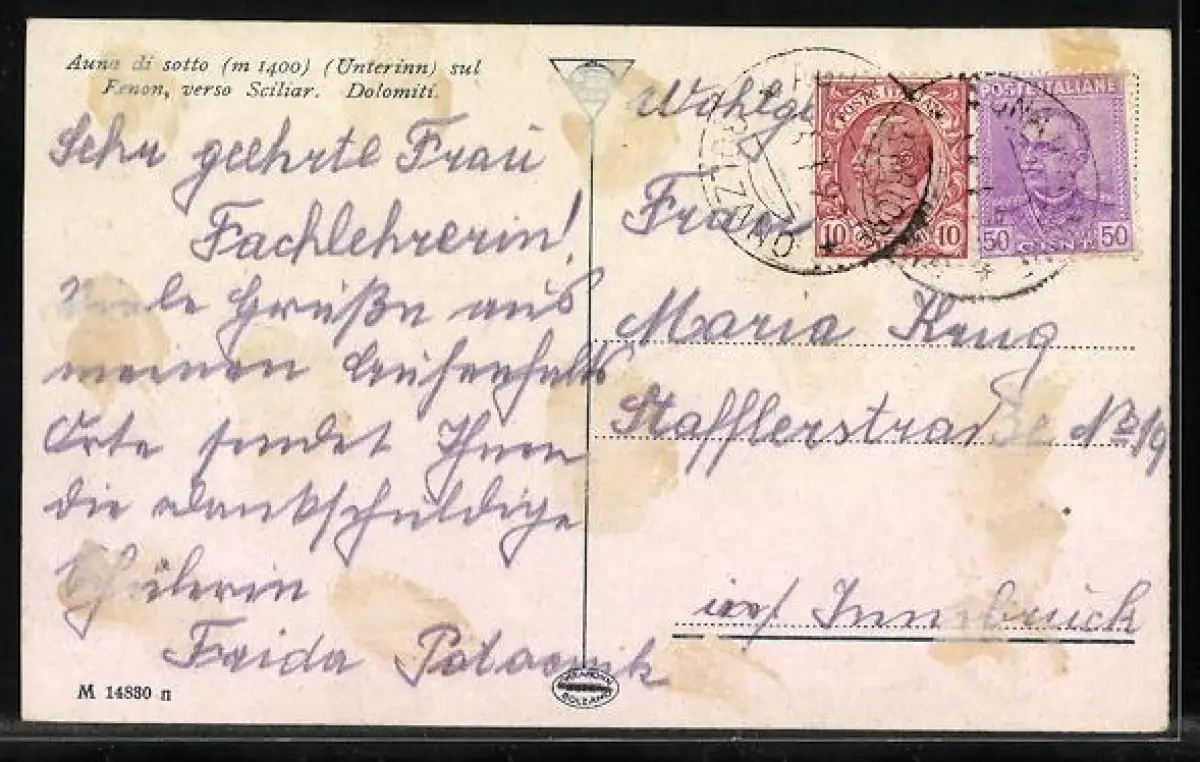 Auna di sotto (m 1400) (Unterinn) sul
Renon, verso Sciliar. Dolomiti.
Sehr geehrte Frau
Fachlehrerin!
Viele Grüße aus
meinen Aufenthalts
Orte sendet Ihnen
die dankschuldige
Schülerin
Frida
M 14830 n
BOLZANO
Wohlg
Frau
Maria
Stafflerstraße No 19
Innsbruck
POSTE ITALIANE
10 10
POSTE ITALIANE
50 CENT. 50